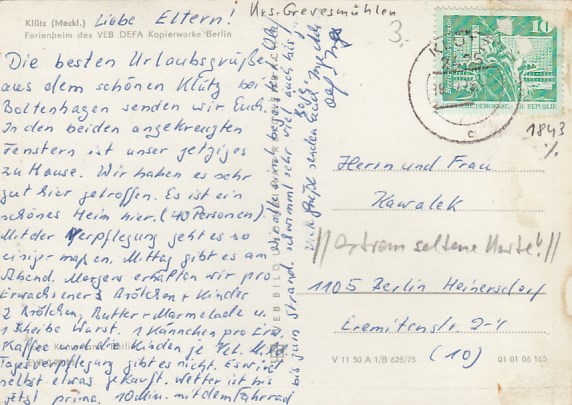 Klütz (Meckl.)
Ferienheim des VEB DEFA Kopierwerke Berlin
Krs. Grevesmühlen
3.-
Liebe Eltern!
Die besten Urlaubsgrüße
aus dem schönen Klütz bei
Boltenhagen senden wir Euch.
In den beiden angekreuzten
Fenstern ist unser jetziges
zu Hause. Wir haben es sehr
gut hier getroffen. Es ist ein
schönes Heim hier. (40 Personen)
Mit der Verpflegung geht es so
einiger maßen. Mittag gibt es am
Abend. Morgens erhalten wir pro
Erwachsener 3 Brötchen + Kinder
2 Brötchen, Butter + Marmelade u.
1 Scheibe Wurst. 1 Kännchen pro Erw.
Kaffee und die Kinder je
Tagesverpflegung gibt es nicht. Es wird
selbst etwas gekauft. Wetter ist bis
jetzt prima. 10 Min. mit dem Fahrrad
bis zum Strand.
schwimmt sehr viel auch bis
Viele Grüße senden Euch
10
DEUTSCHE DEMOKRATISCHE REPUBLIK
1843
%
Herrn und Frau
Kawalek
//Extrem seltene Karte!//
1105 Berlin Heinersdorf
Eremitenstr. 2-4
(10)
VEB BILD U
V 11 50 A 1/B 628/75
01 01 06 165